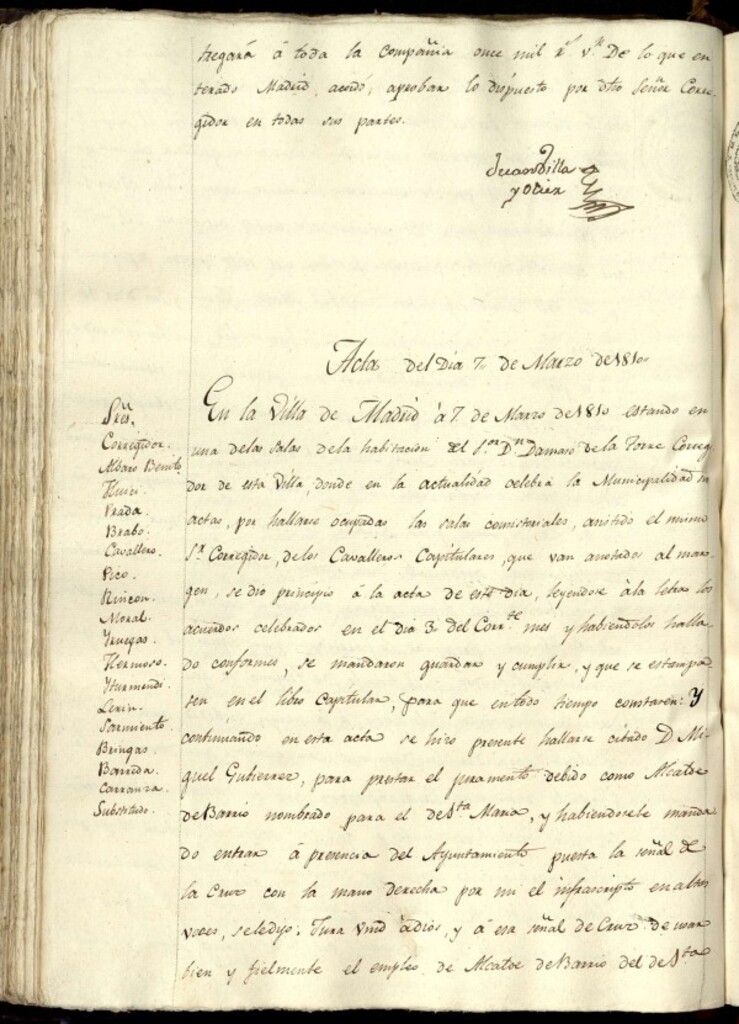 tregará á toda la compañia once mil rˢ vⁿ De lo que en
terado Madrid, acordó, aprobar lo dispuesto por dho Señor Corre-
gidor en todas sus partes.
Juan Villa
y Olier
Acta del Dia 7, de Marzo de 1810
Sres.
Corregidor.
Albaro Benito
Prada.
Brabo.
Cavallero.
Pico.
Rincon.
Moral.
Yruegas.
Hermoso.
Yturmendi.
Lerin.
Sarmiento.
Bringas.
Barreda.
Carranza.
Substituto.
En la Villa de Madrid á 7, de Marzo de 1810 estando en
una de las salas de la habitacion del S.ᵒʳ Dⁿ Damaso de la Torre Correg
dor de esta Villa, donde en la actualidad celebra la Municipalidad su
actas, por hallarse ocupadas las salas consistoriales, asistido el mismo
S.ʳ Corregidor, de los Cavalleros Capitulares, que van anotados al mar-
gen, se dio principio á la acta de este dia, leyendose á la letra los
acuerdos celebrados en el dia 3, del Corr.ᵗᵉ mes y habiendolos halla-
do conformes, se mandaron guardar y cumplir, y que se estampa-
sen en el libro Capitular, para que en todo tiempo constasen: Y
continuando en esta acta se hizo presente hallarse citado D. Mi-
guel Gutierrez, para prestar el juramento debido como Alcalde
de Barrio nombrado para el de S.ᵗᵃ Maria, y habiendosele manda
do entrar á presencia del Ayuntamiento puesta la señal de
la Cruz con la mano derecha por mi el infrascripto en altas
voces, se le dijo: Jura Vmd á dios, y á esa señal de Cruz de usar
bien y fielmente el empleo de Alcalde de Barrio del de S.ᵗᵃ